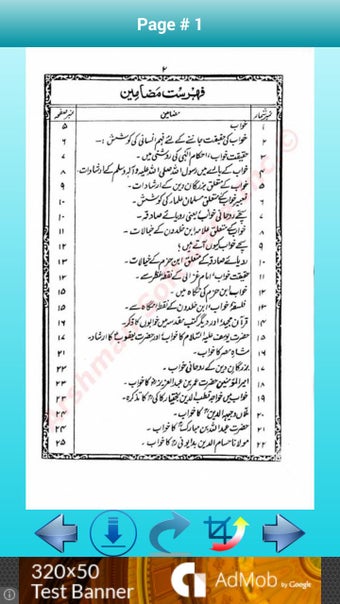 Page # 1
۲
فہرست مضامین
نمبر شمار مضامین نمبر صفحہ
۱ خواب ۵
۲ خواب کی حقیقت جاننے کے لئے فہم انسانی کی کوشش :- ۶
۳ حقیقت خواب، احکام الٰہی کی روشنی میں ۔ ۷
۴ خواب کے بارے میں رسول اللہ صلی اللہ علیہ وآلہ وسلم کے ارشادات ۔ ۸
۵ خواب کے متعلق بزرگان دین کے ارشادات ۔ ۹
۶ تعبیر خواب کے متعلق مسلمان علماء کی کوشش ۔ ۱۰
۷ سچے روحانی خواب یعنی رویائے صادقہ ۔ ۱۰
۸ خواب کے متعلق علامہ ابن خلدون کے خیالات ۔ ۱۱
۹ سچے خواب کیوں آتے ہیں؟ ۱۲
۱۰ رویائے صادقہ کے متعلق ابن حزم کے خیالات ۔ ۱۳
۱۱ حقیقت خواب، امام غزالی کے نقطہ نظر سے ۔ ۱۲
۱۲ خواب ابن حزم کی نگاہ میں ۔ ۱۵
۱۳ فلسفۂ خواب، ابن خلدون کے نقطہ نگاہ سے ۔ ۱۶
۱۴ قرآن مجید اور دیگر کتب مقدسہ میں خوابوں کا ذکر ۔ ۱۶
۱۵ حضرت یوسف علیہ السلام کا خواب اور حضرت یعقوبؑ کا ارشاد ۔ ۱۷
۱۶ شاہِ مصر کا خواب ۔ ۲۱
۱۷ بزرگان دین کے روحانی خواب ۔ ۲۲
۱۸ امیر المومنین حضرت عمر بن عبد العزیز کا خواب ۔ ۲۳
۱۹ خواب میں خواجہ قطب الدین بختیار کاکی کا تذکرہ ۔ ۲۳
۲۰ وجیہہ الدین کا خواب ۔ ۲۴
۲۱ حضرت عبد اللہ بن مبارک کا خواب ۔ ۲۴
۲۲ مولانا حسام الدین بدایونی کا خواب ۔ ۲۵
320x50
Test Banner
AdMob by Google